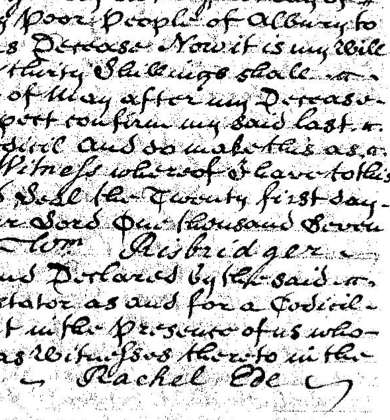 poor people of Albury to
s Decease Now it is my Will
thirty Shillings shall
of May after my Decease
pect confirm my said last
dicil And do make this as a
Witness whereof I have to this
Seal the Twenty first day
r Lord One thousand Seven
Tom Risbridger
nd Declared by the said
stator as and for a Codicil
t in the presence of us who
as Witnesses thereto in the
Rachel Ede